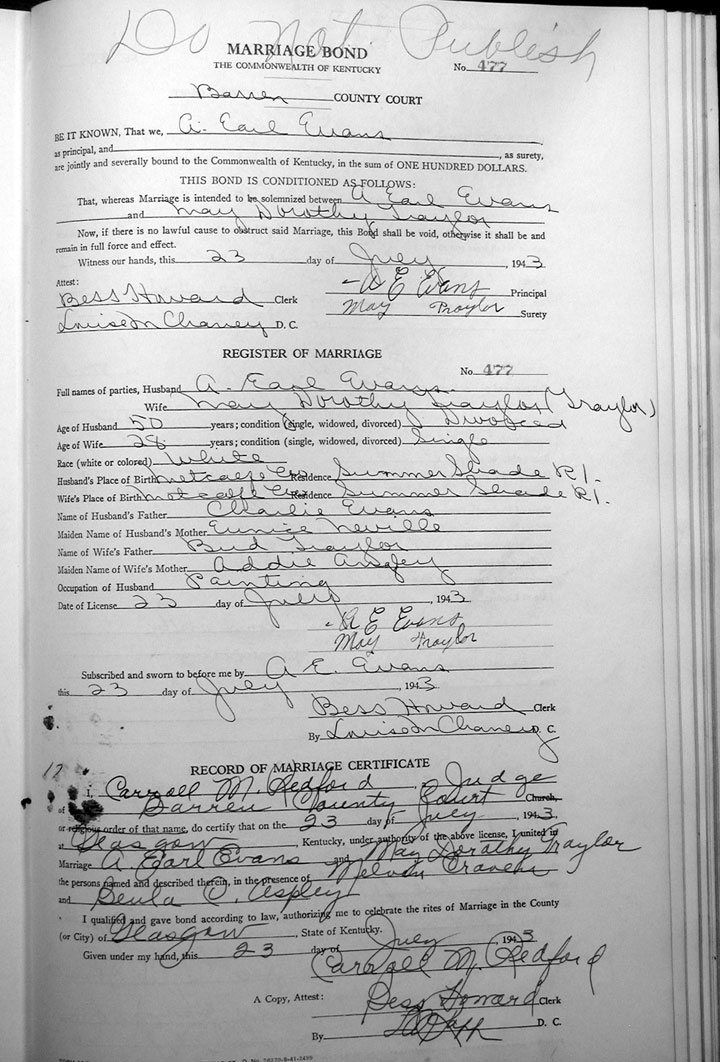 Do Not Publish
MARRIAGE BOND
THE COMMONWEALTH OF KENTUCKY
No. 477
Barren COUNTY COURT
BE IT KNOWN, That we, A. Earl Evans
as principal, and , as surety,
are jointly and severally bound to the Commonwealth of Kentucky, in the sum of ONE HUNDRED DOLLARS.
THIS BOND IS CONDITIONED AS FOLLOWS:
That, whereas Marriage is intended to be solemnized between A Earl Evans
and May Dorothy Traylor
Now, if there is no lawful cause to obstruct said Marriage, this Bond shall be void, otherwise it shall be and
remain in full force and effect.
Witness our hands, this 23 day of July , 1943
Attest:
A E Evans Principal
Bess Howard Clerk
May Traylor Surety
Louise M Chaney D. C.
REGISTER OF MARRIAGE
No. 477
Full names of parties, Husband A. Earl Evans
Wife May Dorothy Traylor (Traylor)
Age of Husband 50 years; condition (single, widowed, divorced) Divorced
Age of Wife 28 years; condition (single, widowed, divorced) Single
Race (white or colored) White
Husband's Place of Birth Metcalfe Co Residence Summer Shade R1.
Wife's Place of Birth Metcalfe Co Residence Summer Shade R1.
Name of Husband's Father Charlie Evans
Maiden Name of Husband's Mother Eunice Neville
Name of Wife's Father Bud Traylor
Maiden Name of Wife's Mother Addie
Occupation of Husband Painting
Date of License 23 day of July , 1943
A E Evans
May Traylor
Subscribed and sworn to before me by A E. Evans
this 23 day of July , 1943
Bess Howard Clerk
By Louise M Chaney D. C.
17
RECORD OF MARRIAGE CERTIFICATE
I, Carroll M. Redford , Judge
of Barren County Court Church,
or religious order of that name, do certify that on the 23 day of July , 1943,
at Glasgow , Kentucky, under authority of the above license, I united in
Marriage A Earl Evans and May Dorothy Traylor
the persons named and described therein, in the presence of Melvin
and Beula O. Aspley
I qualified and gave bond according to law, authorizing me to celebrate the rites of Marriage in the County
(or City) of Glasgow , State of Kentucky.
Given under my hand, this 23 day of July , 1943
Carroll M. Redford
A Copy, Attest: Bess Howard Clerk
By D. C.